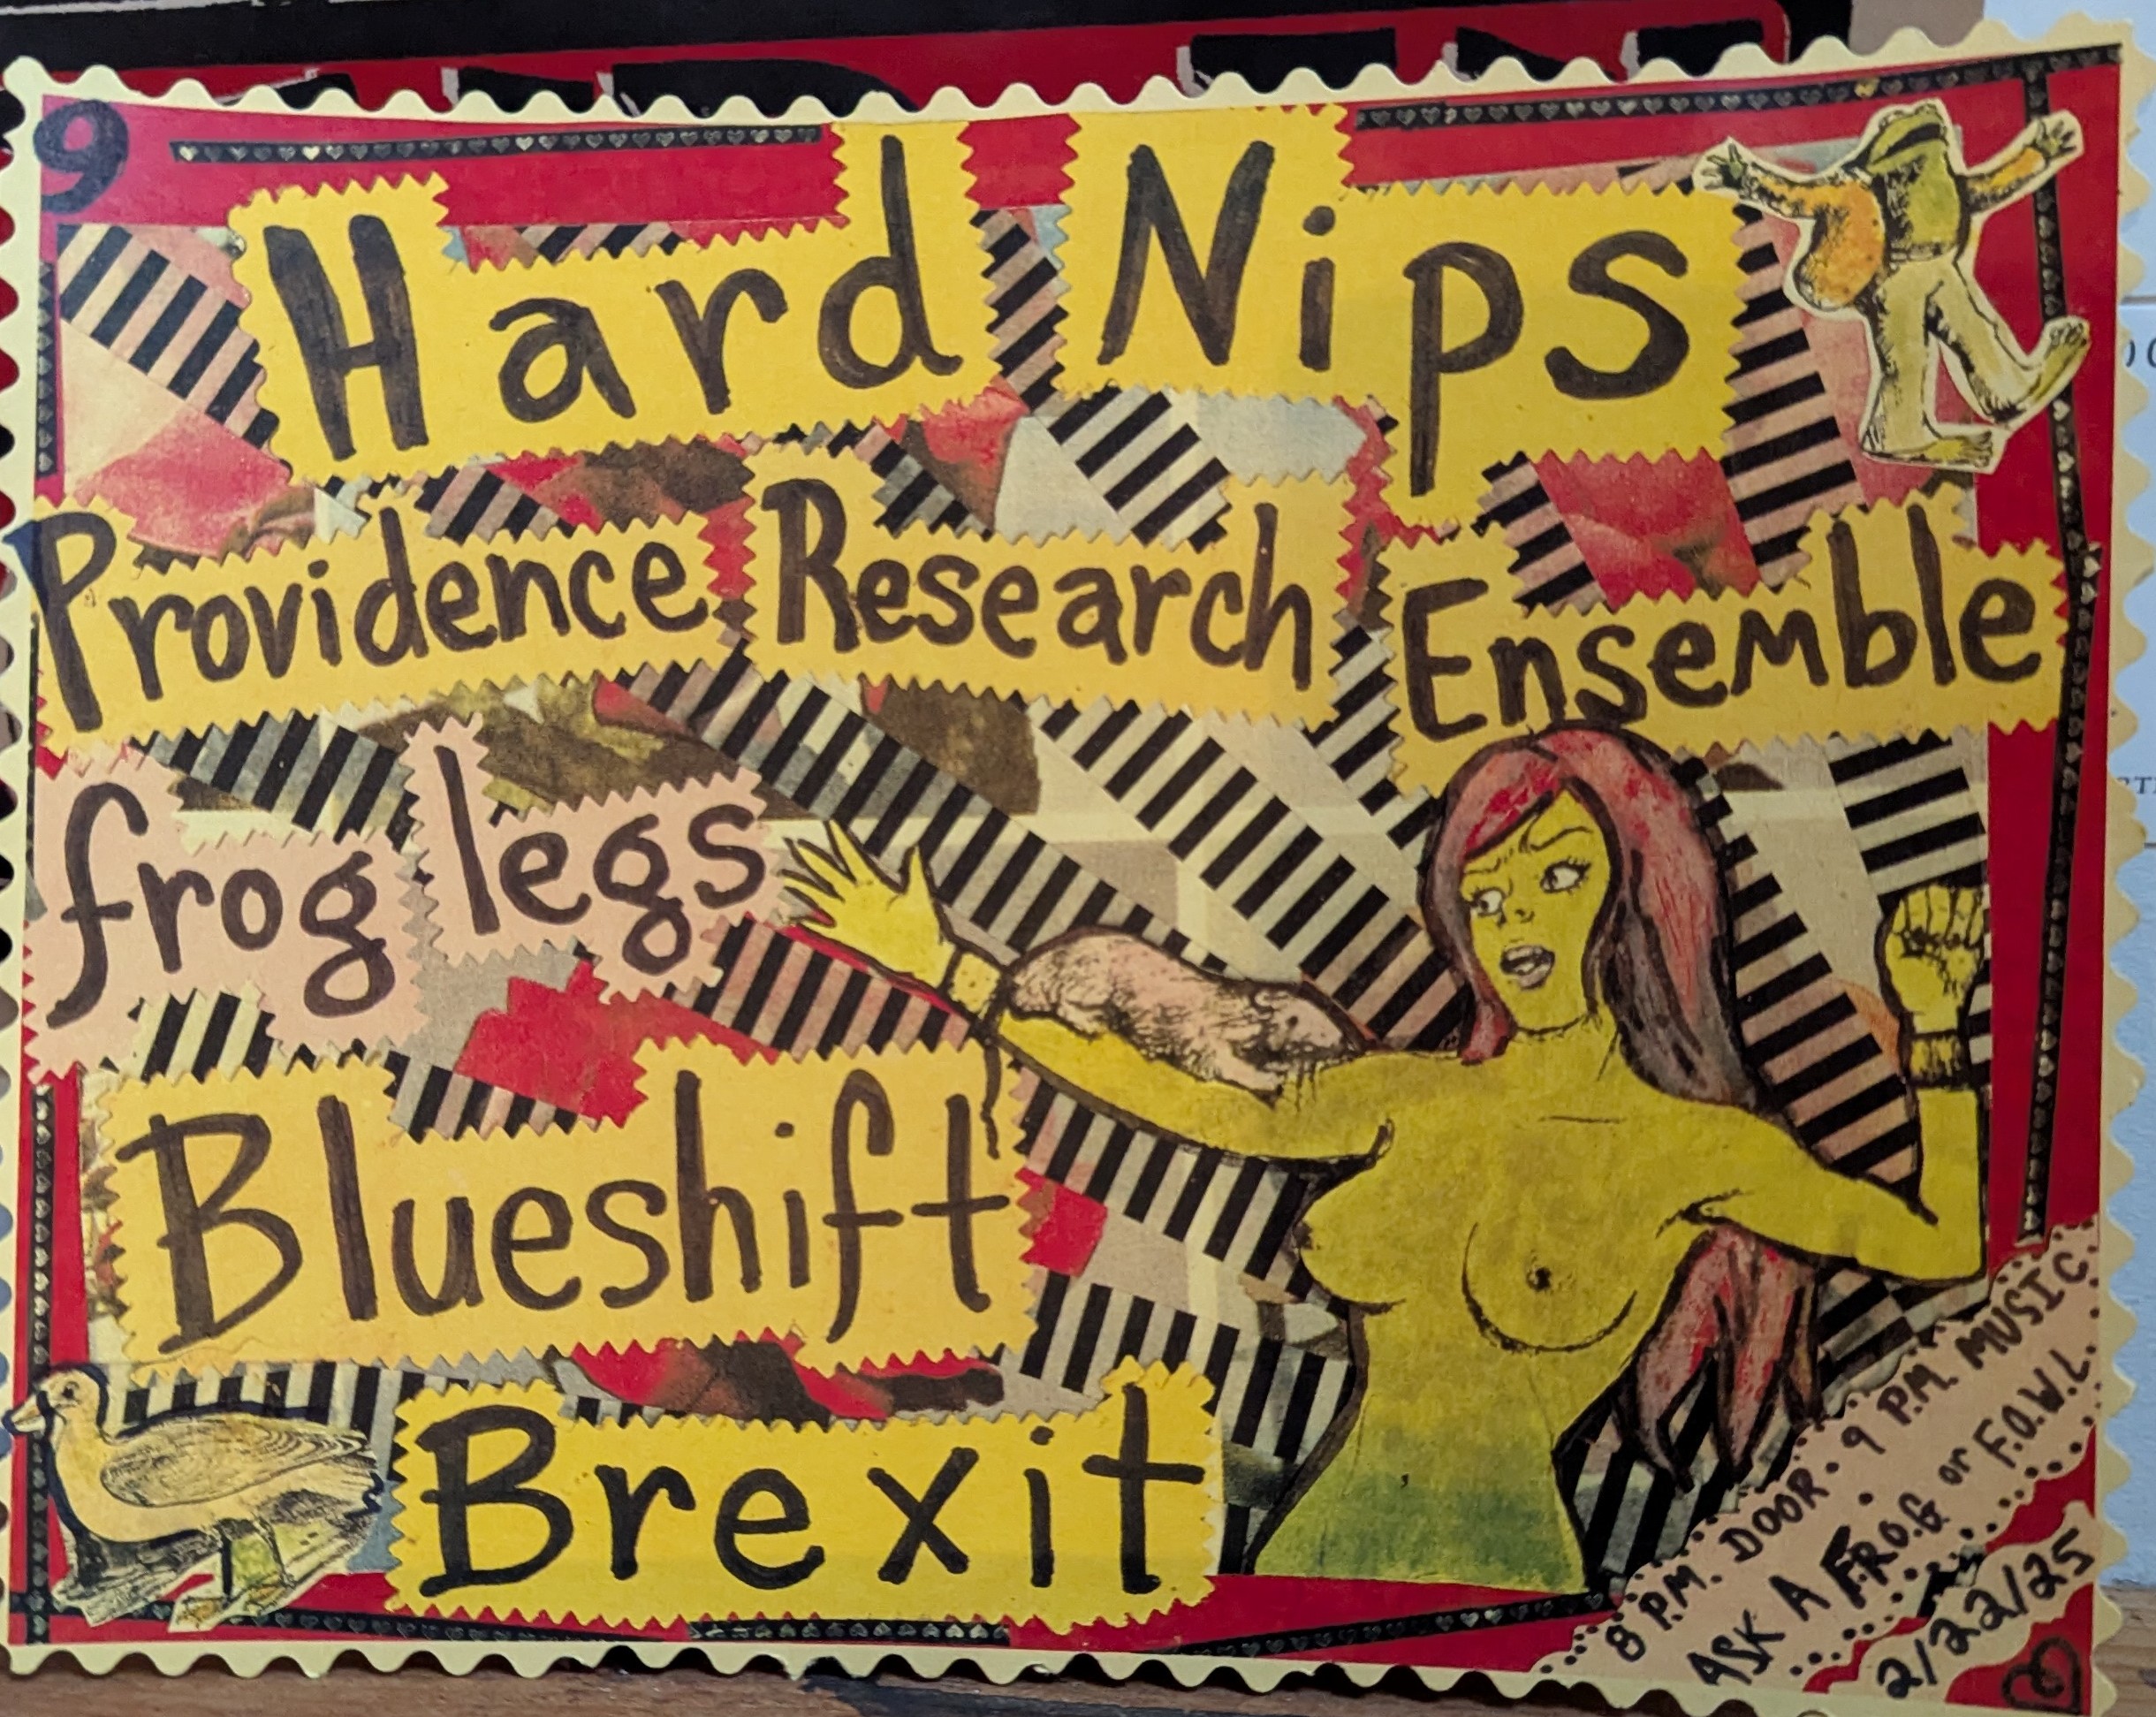 9
Hard Nips
Providence Research Ensemble
frog legs
Blueshift
Brexit
8 P.M. DOOR. 9 P.M. MUSIC
ASK A F.R.O.G or F.O.W.L.
2/22/25